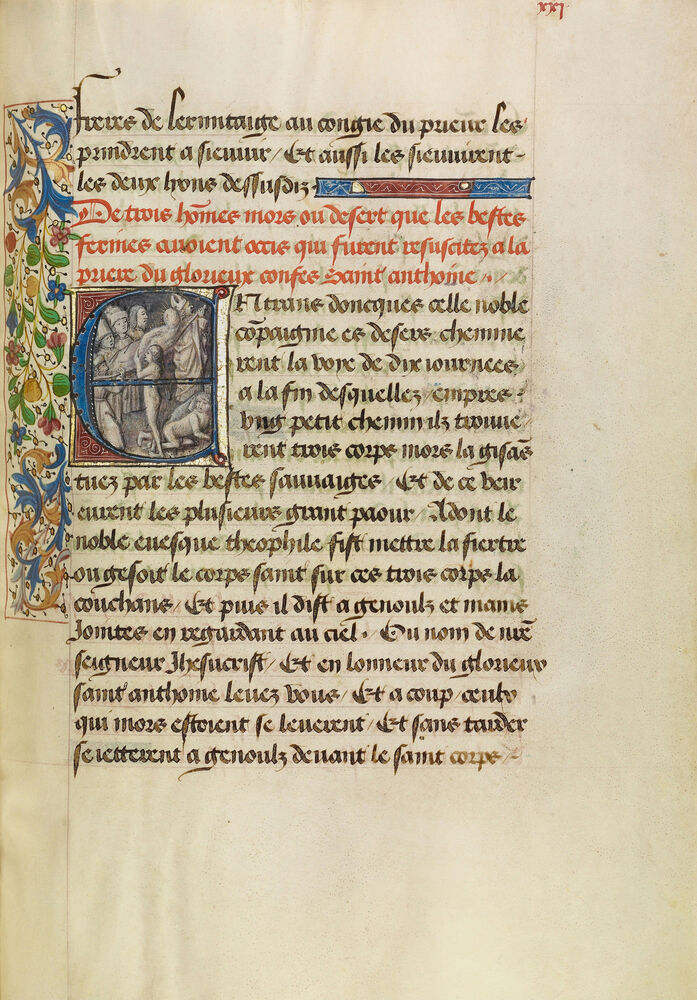 xxj
freres de lermitaige au congie du prieur les
prindrent a sieuuir / Et aussi les sieuuirent -
les deux lyons dessusdiz
De trois hõmes mors ou desert que les bestes
fermes auoient occis qui furent resuscitez a la
priere du glorieux confes Saint anthoine . .
EN trans doncques celle noble
cõpaignie es desers chemine
rent la voye de dix iournees
a la fin desquellez / empres -
vng petit chemin ilz trouue
rent trois corps mors la gisãs
tuez par les bestes sauuaiges / Et de ce veir
eurent les plusieurs grant paour / Adont le
noble euesque theophile fist mettre la fiertre
ou gesoit le corps saint sur ces trois corps la
couchans / Et puis il dist a genoulz et mains
Jointes en regardant au ciel . Ou nom de nr̃e
seigneur Jhesucrist / Et en lonneur du glorieux
saint anthoine leuez vous / Et a coup ceulx
qui mors estoient se leuerent / Et sans tarder
se ietterent a genoulz deuant le saint corps / -